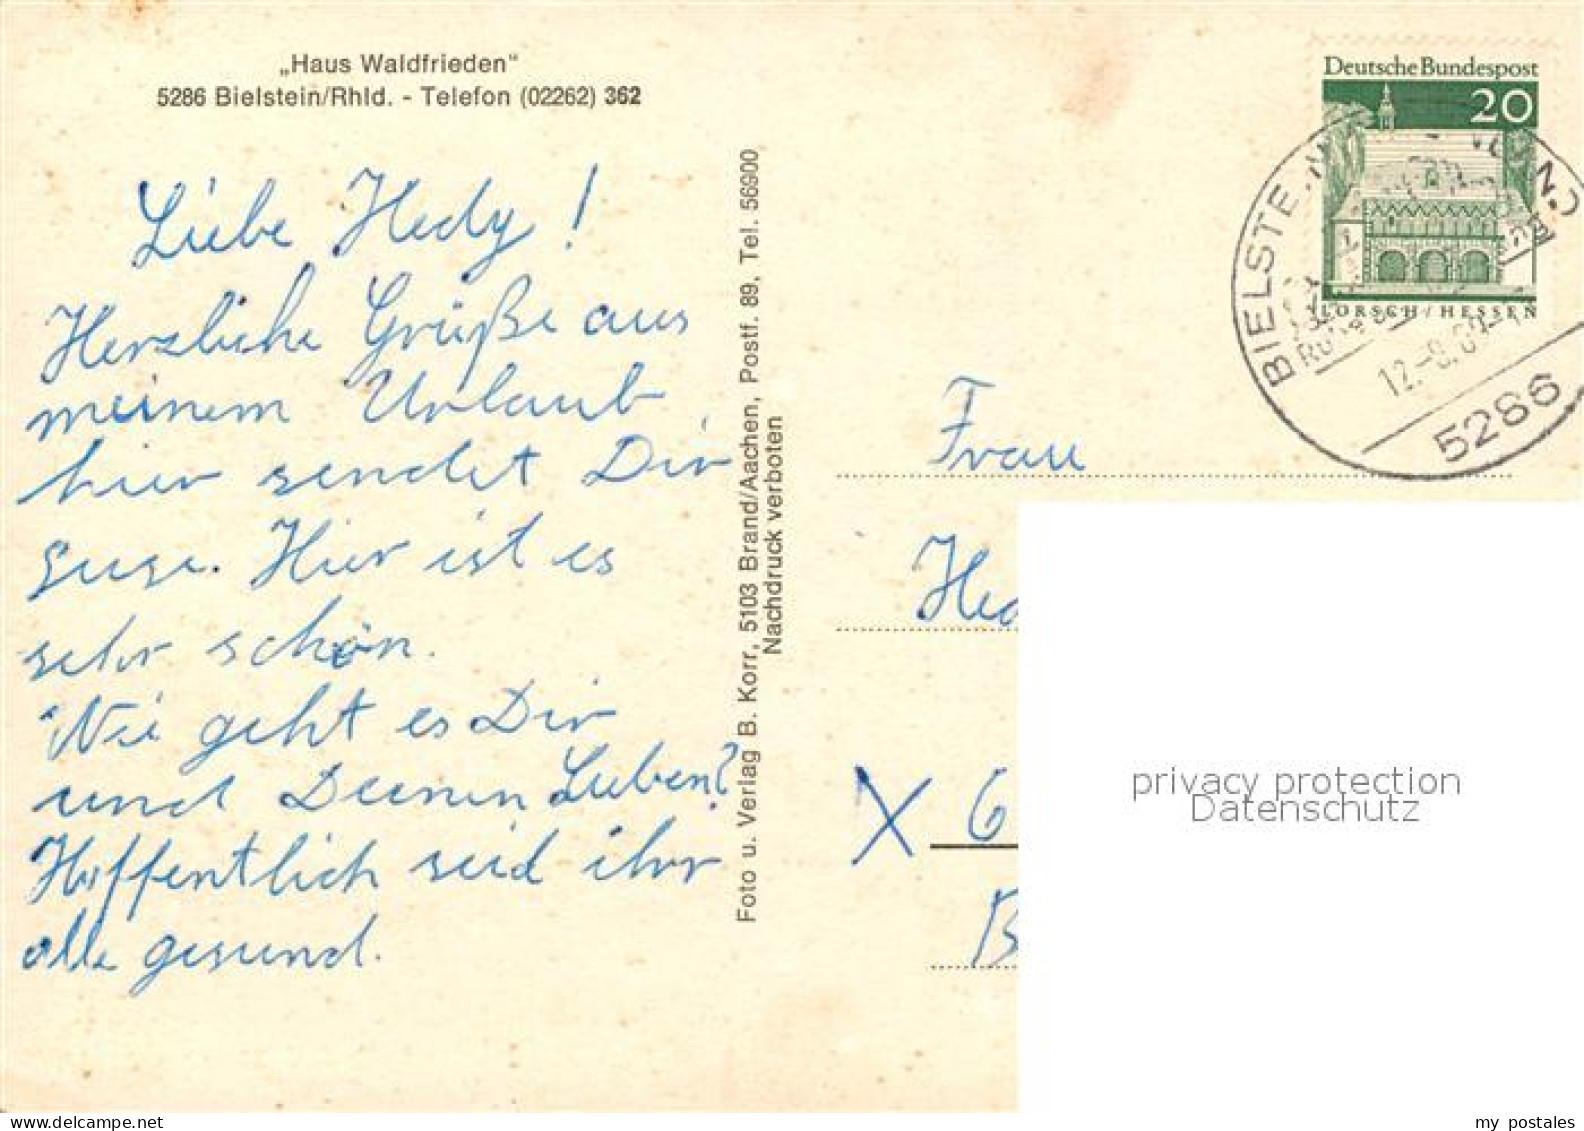 „Haus Waldfrieden"
5286 Bielstein/Rhld. - Telefon (02262) 362
Liebe Hedy!
Herzliche Grüße aus
meinem Urlaub
hier sendet Dir
Suse. Hier ist es
sehr schön.
Wie geht es Dir
und Deinen Lieben?
Hoffentlich seid ihr
alle gesund.
Foto u. Verlag B. Korr, 5103 Brand/Aachen, Postf. 89, Tel. 56900
Nachdruck verboten
Deutsche Bundespost
20
LORSCH/HESSEN
BIELSTE
12.-8.69
5286
Frau
Hed
X 6
B
privacy protection
Datenschutz
my postales